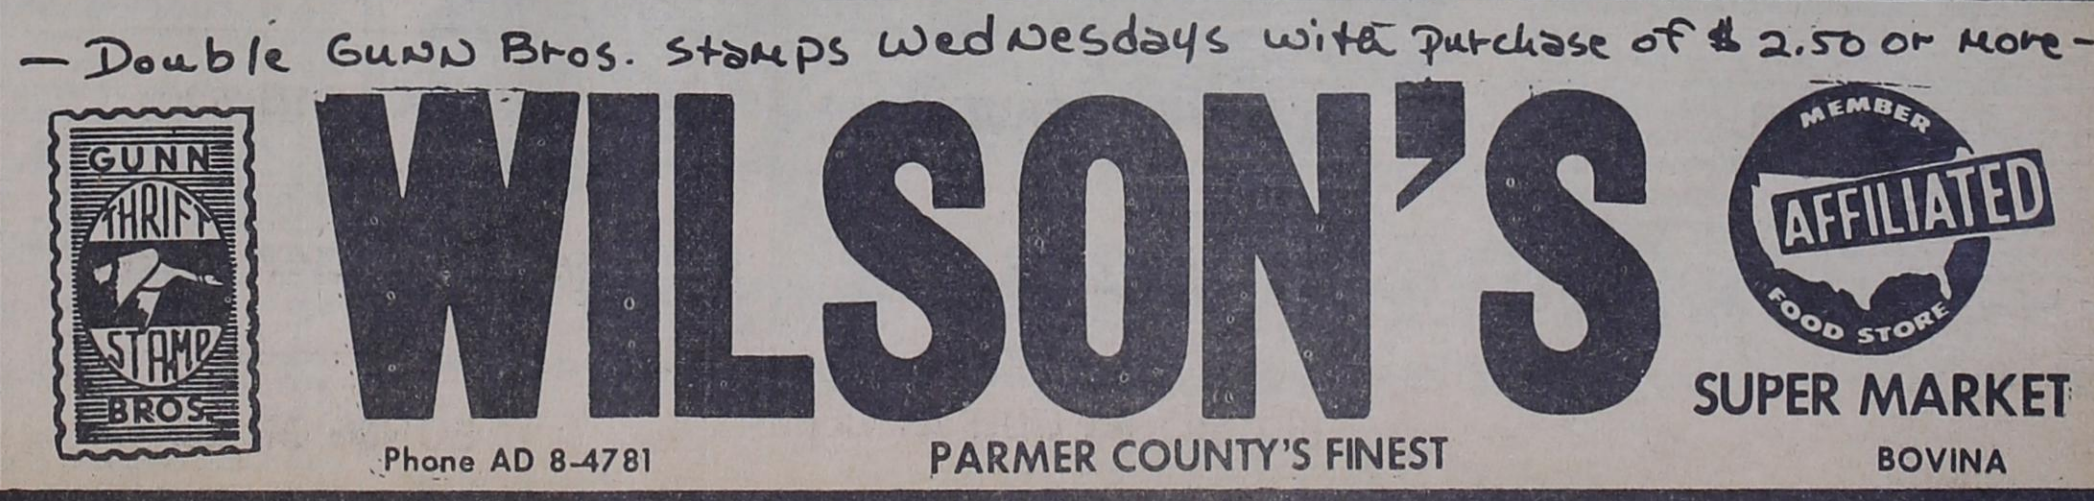 — Double Gunn Bros. Stamps Wednesdays with purchase of $2.50 or more —
GUNN
THRIFT
STAMP
BROS.
WILSON'S
MEMBER
AFFILIATED
FOOD STORE
SUPER MARKET
Phone AD 8-4781
PARMER COUNTY'S FINEST
BOVINA